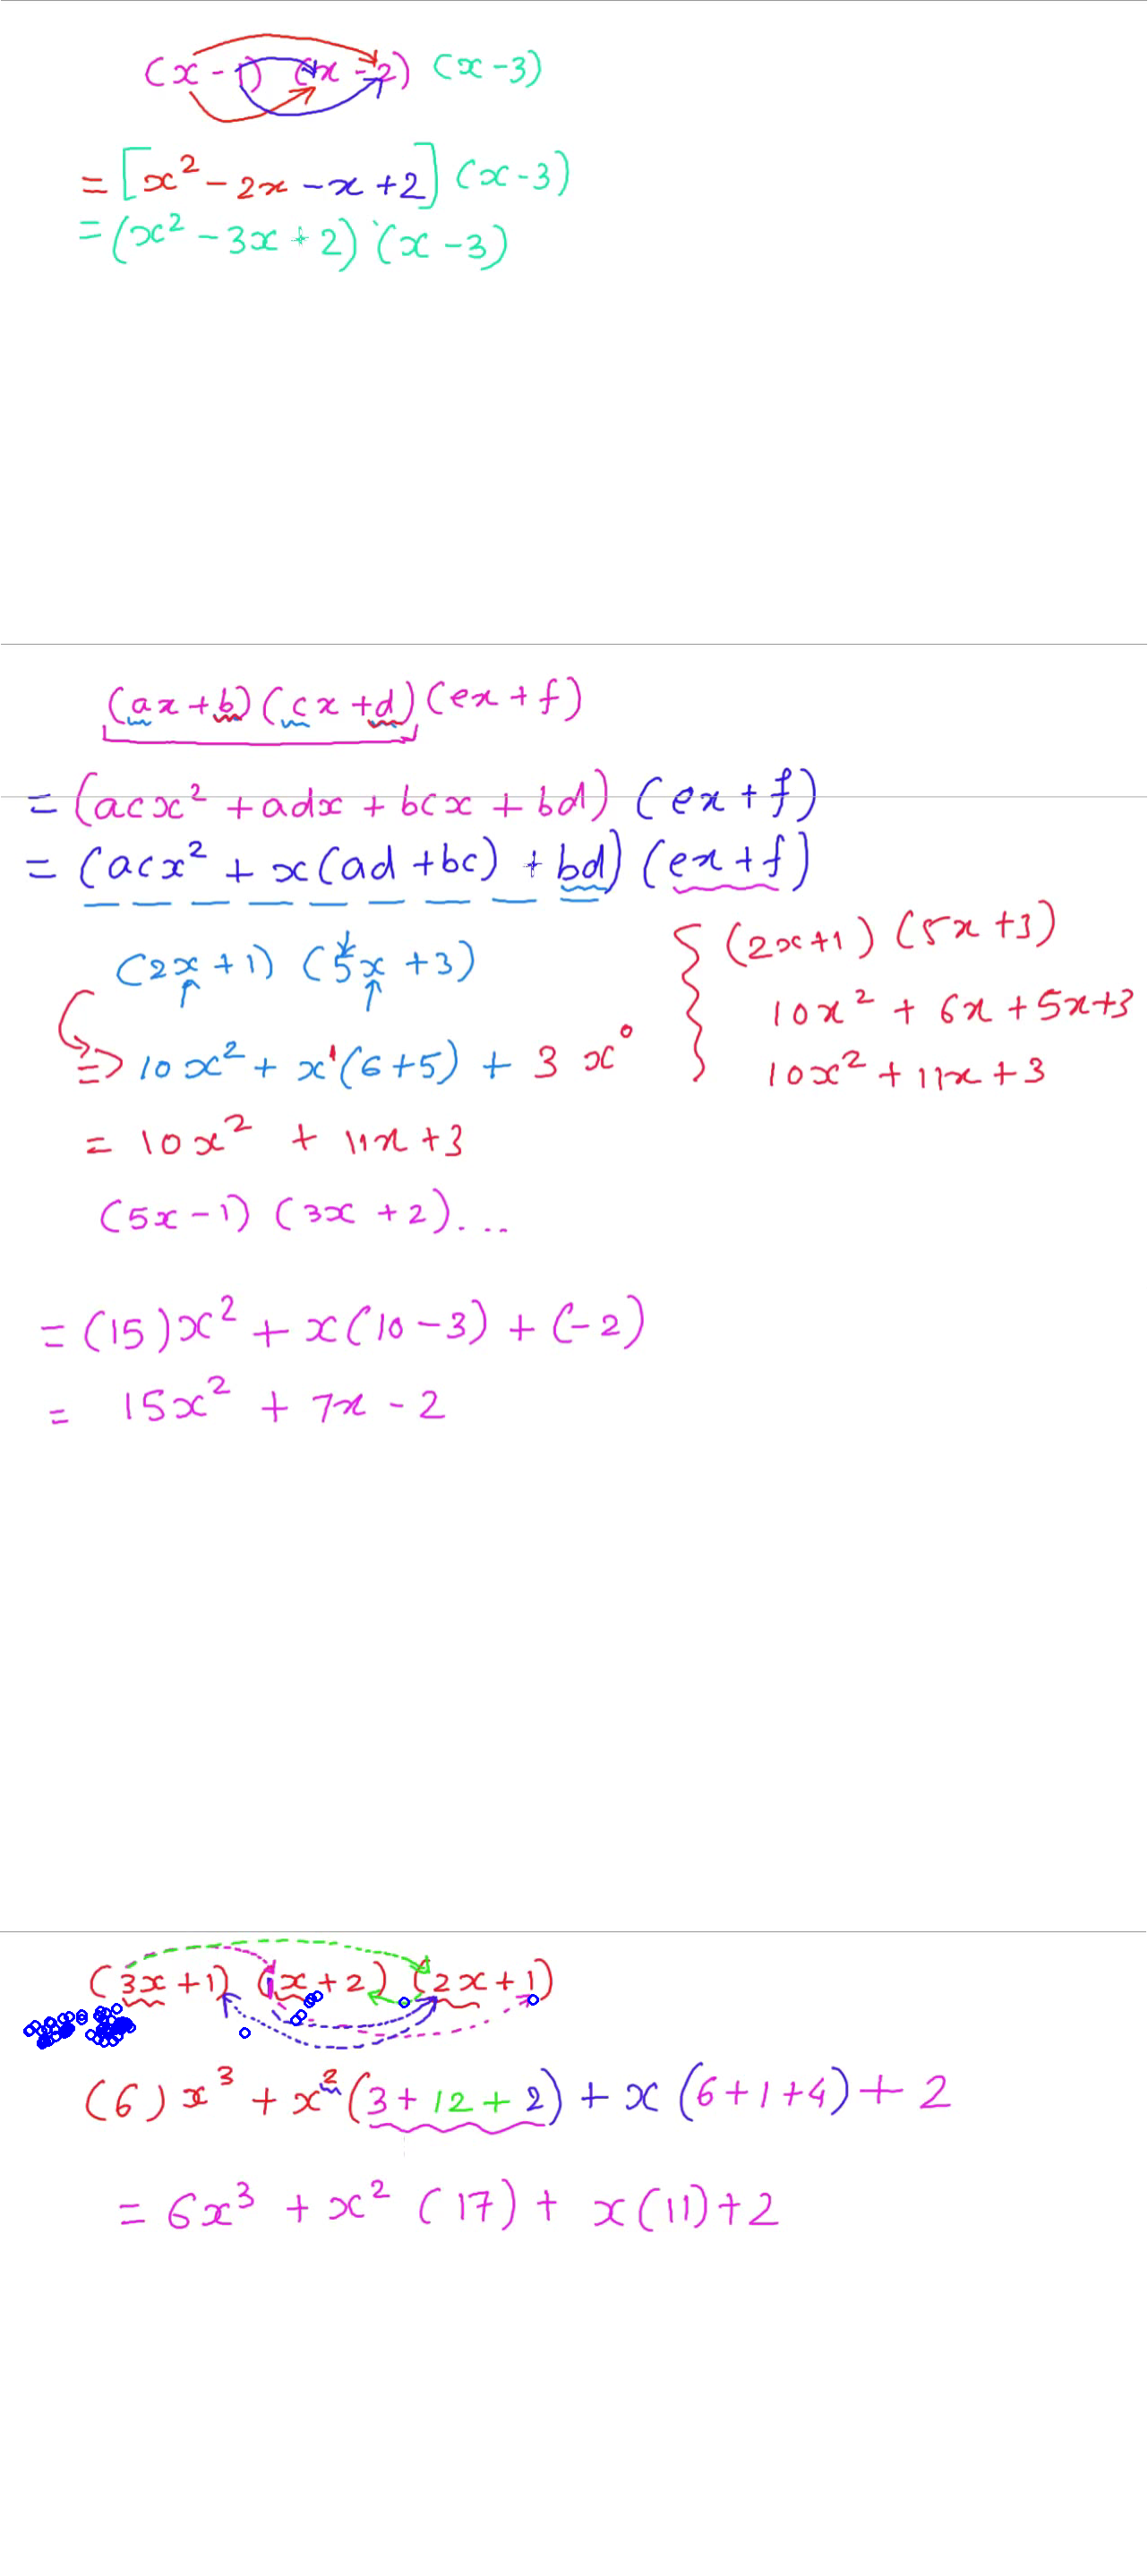 (x - 1) (x - 2) (x - 3)
= [x² - 2x - x + 2] (x - 3)
= (x² - 3x + 2) (x - 3)
(ax + b) (cx + d) (ex + f)
= (acx² + adx + bcx + bd) (ex + f)
= (acx² + x(ad + bc) + bd) (ex + f)
(2x + 1) (5x + 3)
=> 10x² + x¹(6 + 5) + 3 x⁰
= 10x² + 11x + 3
{ (2x + 1) (5x + 3)
10x² + 6x + 5x + 3
10x² + 11x + 3
(5x - 1) (3x + 2)...
= (15)x² + x(10 - 3) + (-2)
= 15x² + 7x - 2
(3x + 1) (x + 2) (2x + 1)
(6)x³ + x²(3 + 12 + 2) + x(6 + 1 + 4) + 2
= 6x³ + x² (17) + x(11) + 2